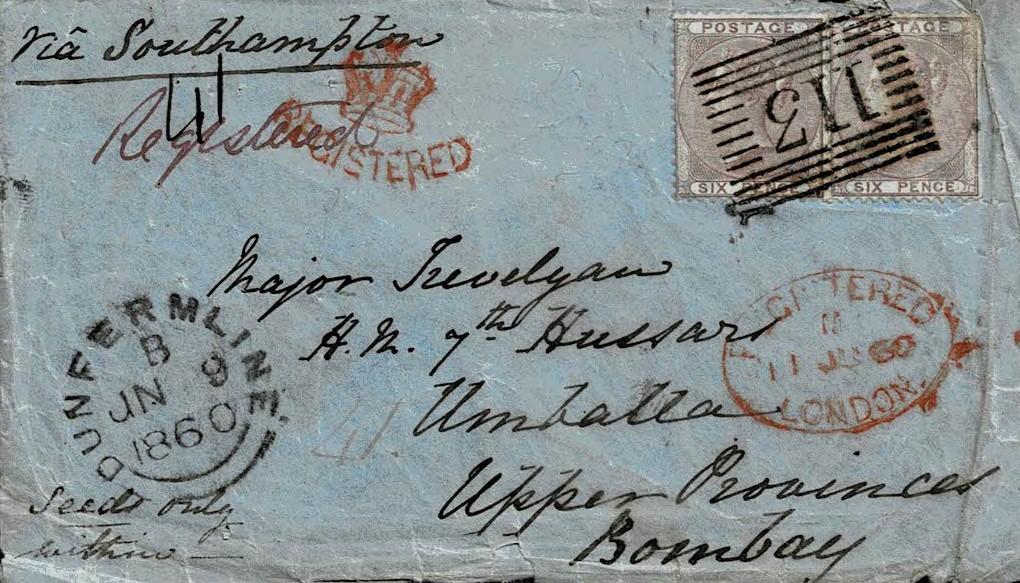 Viâ Southampton
Registered
REGISTERED
POSTAGE POSTAGE
113
SIX PENCE SIX PENCE
Major Trevelyan
H.M. 7th Hussars
Umballa
Upper Provinces
Bombay
REGISTERED
11 JU 60
LONDON
DUNFERMLINE
B
JN 9
1860
Seeds only
within